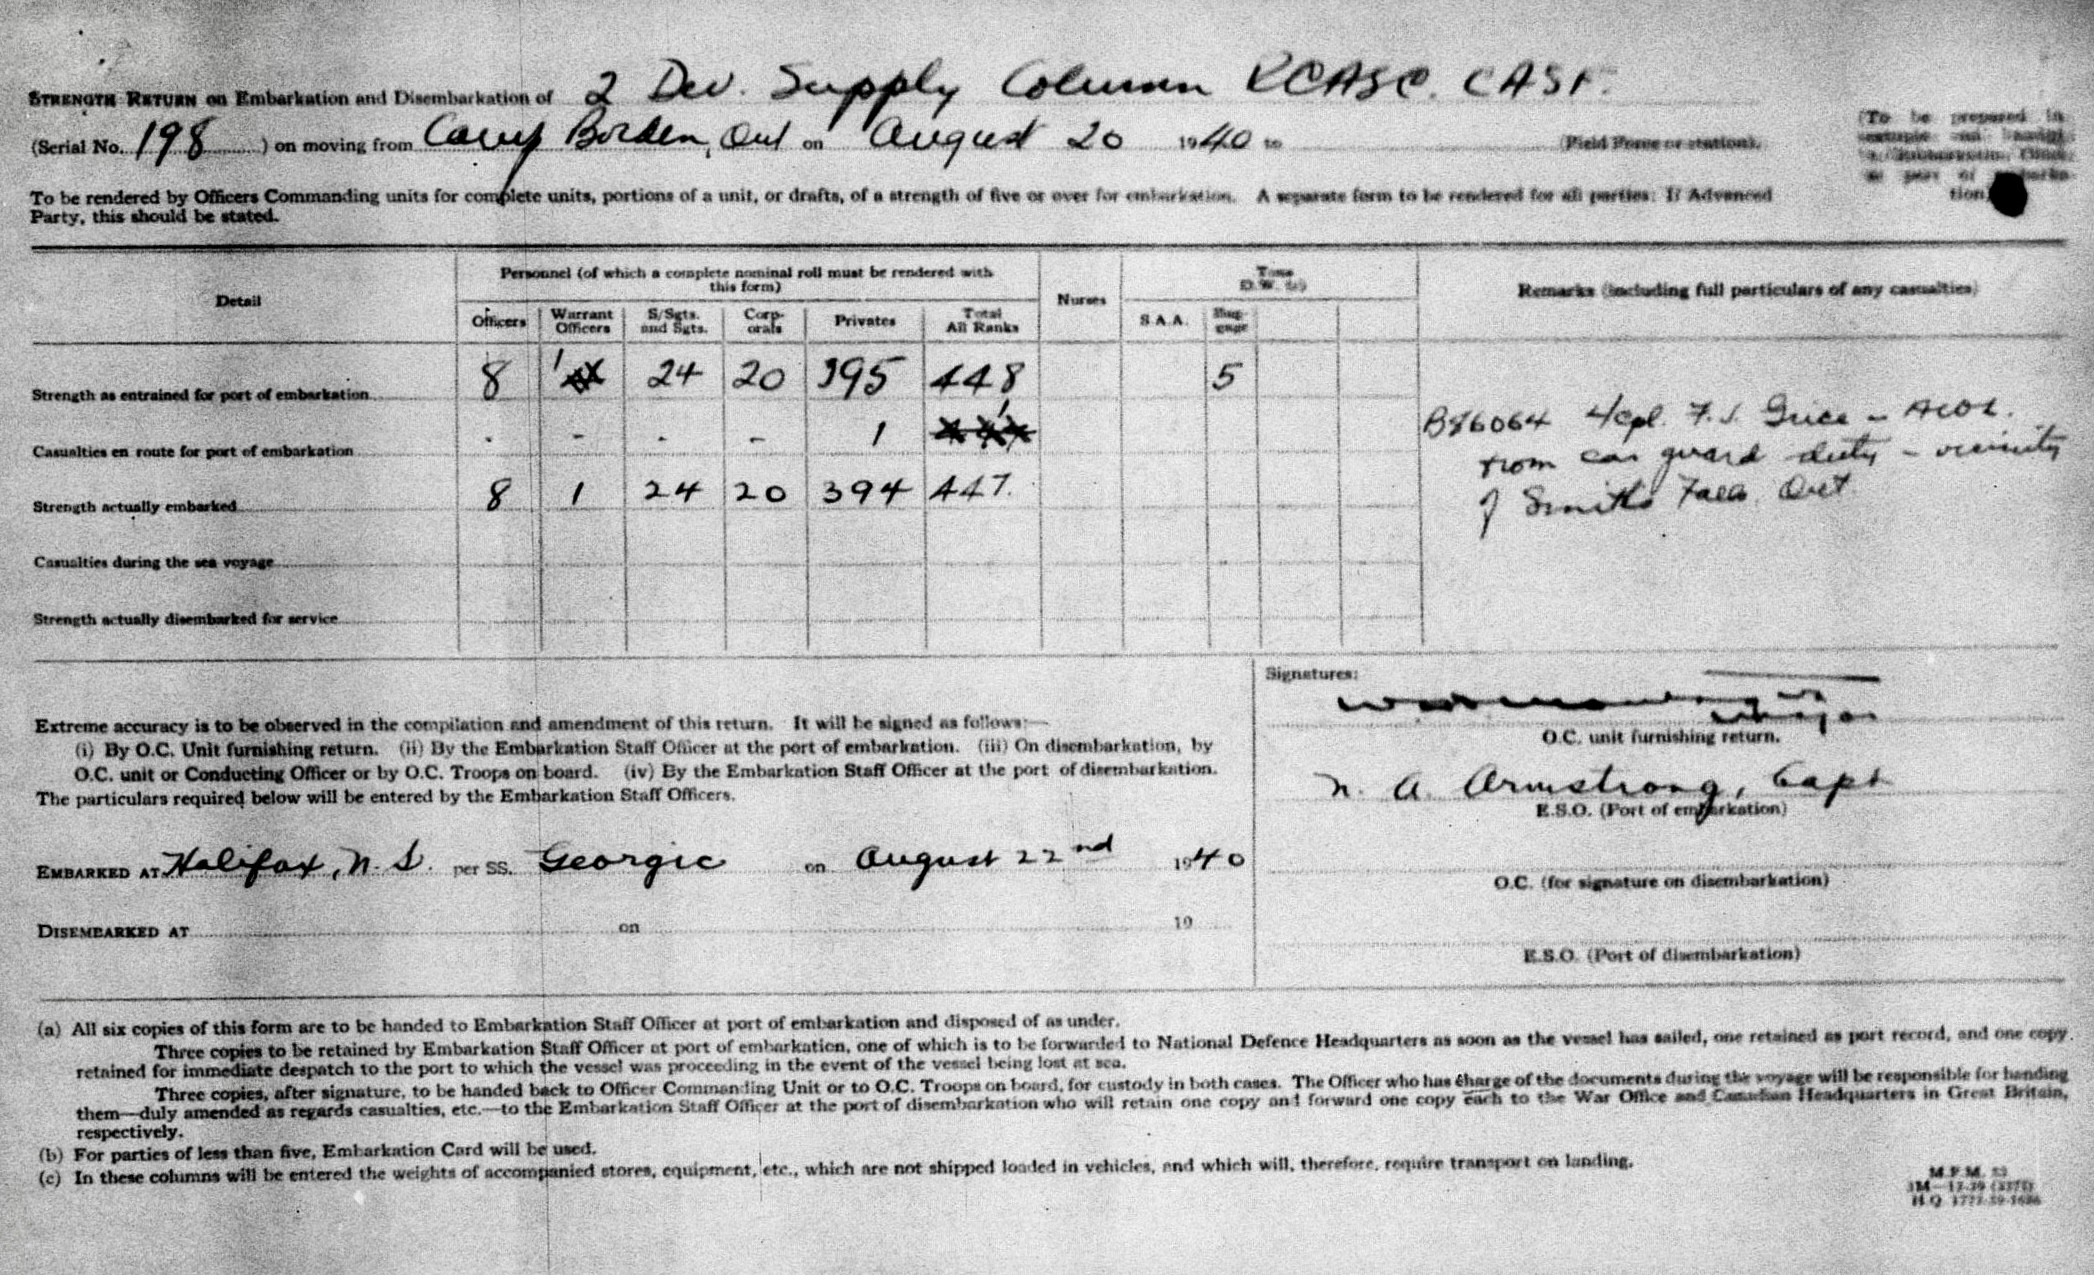 STRENGTH RETURN on Embarkation and Disembarkation of 2 Div. Supply Column RCASC. CASF.
(Serial No. 198 ) on moving from Camp Borden, Ont on August 20 1940 to (Field Force or station).
(To be prepared in
tion)
To be rendered by Officers Commanding units for complete units, portions of a unit, or drafts, of a strength of five or over for embarkation. A separate form to be rendered for all parties: If Advanced
Party, this should be stated.
Detail
Personnel (of which a complete nominal roll must be rendered with
this form)
Nurses
Tons
D.W. (c)
Remarks (including full particulars of any casualties)
Officers Warrant Officers S/Sgts. and Sgts. Corp-orals Privates Total All Ranks S.A.A. Bag-gage
Strength as entrained for port of embarkation 8 1 24 20 395 448 5
Casualties en route for port of embarkation . - . - 1 1
Strength actually embarked 8 1 24 20 394 447.
Casualties during the sea voyage
Strength actually disembarked for service
B86064 L/Cpl. F.J. Grice - AWOL.
from car guard duty - vicinity
of Smiths Falls Ont.
Signatures:
Major
O.C. unit furnishing return.
Extreme accuracy is to be observed in the compilation and amendment of this return. It will be signed as follows:—
(i) By O.C. Unit furnishing return. (ii) By the Embarkation Staff Officer at the port of embarkation. (iii) On disembarkation, by
O.C. unit or Conducting Officer or by O.C. Troops on board. (iv) By the Embarkation Staff Officer at the port of disembarkation.
The particulars required below will be entered by the Embarkation Staff Officers.
N. A. Armstrong, Capt
E.S.O. (Port of embarkation)
EMBARKED AT Halifax, N.S. per SS. Georgic on August 22nd 1940
O.C. (for signature on disembarkation)
DISEMBARKED AT on 19
E.S.O. (Port of disembarkation)
(a) All six copies of this form are to be handed to Embarkation Staff Officer at port of embarkation and disposed of as under.
Three copies to be retained by Embarkation Staff Officer at port of embarkation, one of which is to be forwarded to National Defence Headquarters as soon as the vessel has sailed, one retained as port record, and one copy
retained for immediate despatch to the port to which the vessel was proceeding in the event of the vessel being lost at sea.
Three copies, after signature, to be handed back to Officer Commanding Unit or to O.C. Troops on board, for custody in both cases. The Officer who has charge of the documents during the voyage will be responsible for handing
them—duly amended as regards casualties, etc.—to the Embarkation Staff Officer at the port of disembarkation who will retain one copy and forward one copy each to the War Office and Canadian Headquarters in Great Britain,
respectively.
(b) For parties of less than five, Embarkation Card will be used.
(c) In these columns will be entered the weights of accompanied stores, equipment, etc., which are not shipped loaded in vehicles, and which will, therefore, require transport on landing.
M.F.M.